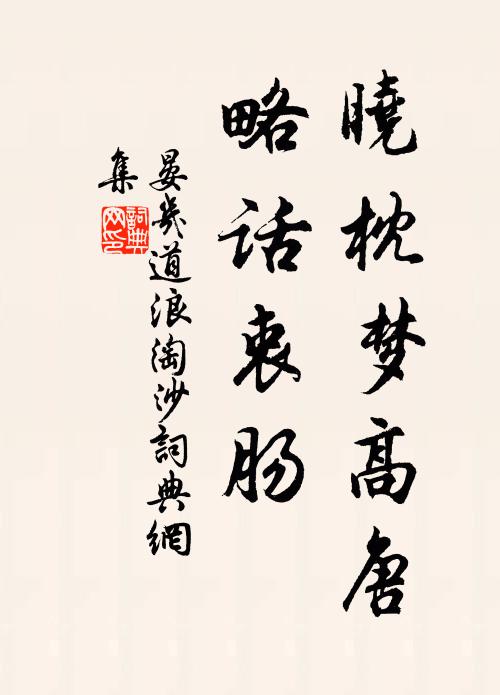 曉枕梦高唐
略话衷肠
晏幾道浪淘沙詞典網
集
詞典网印